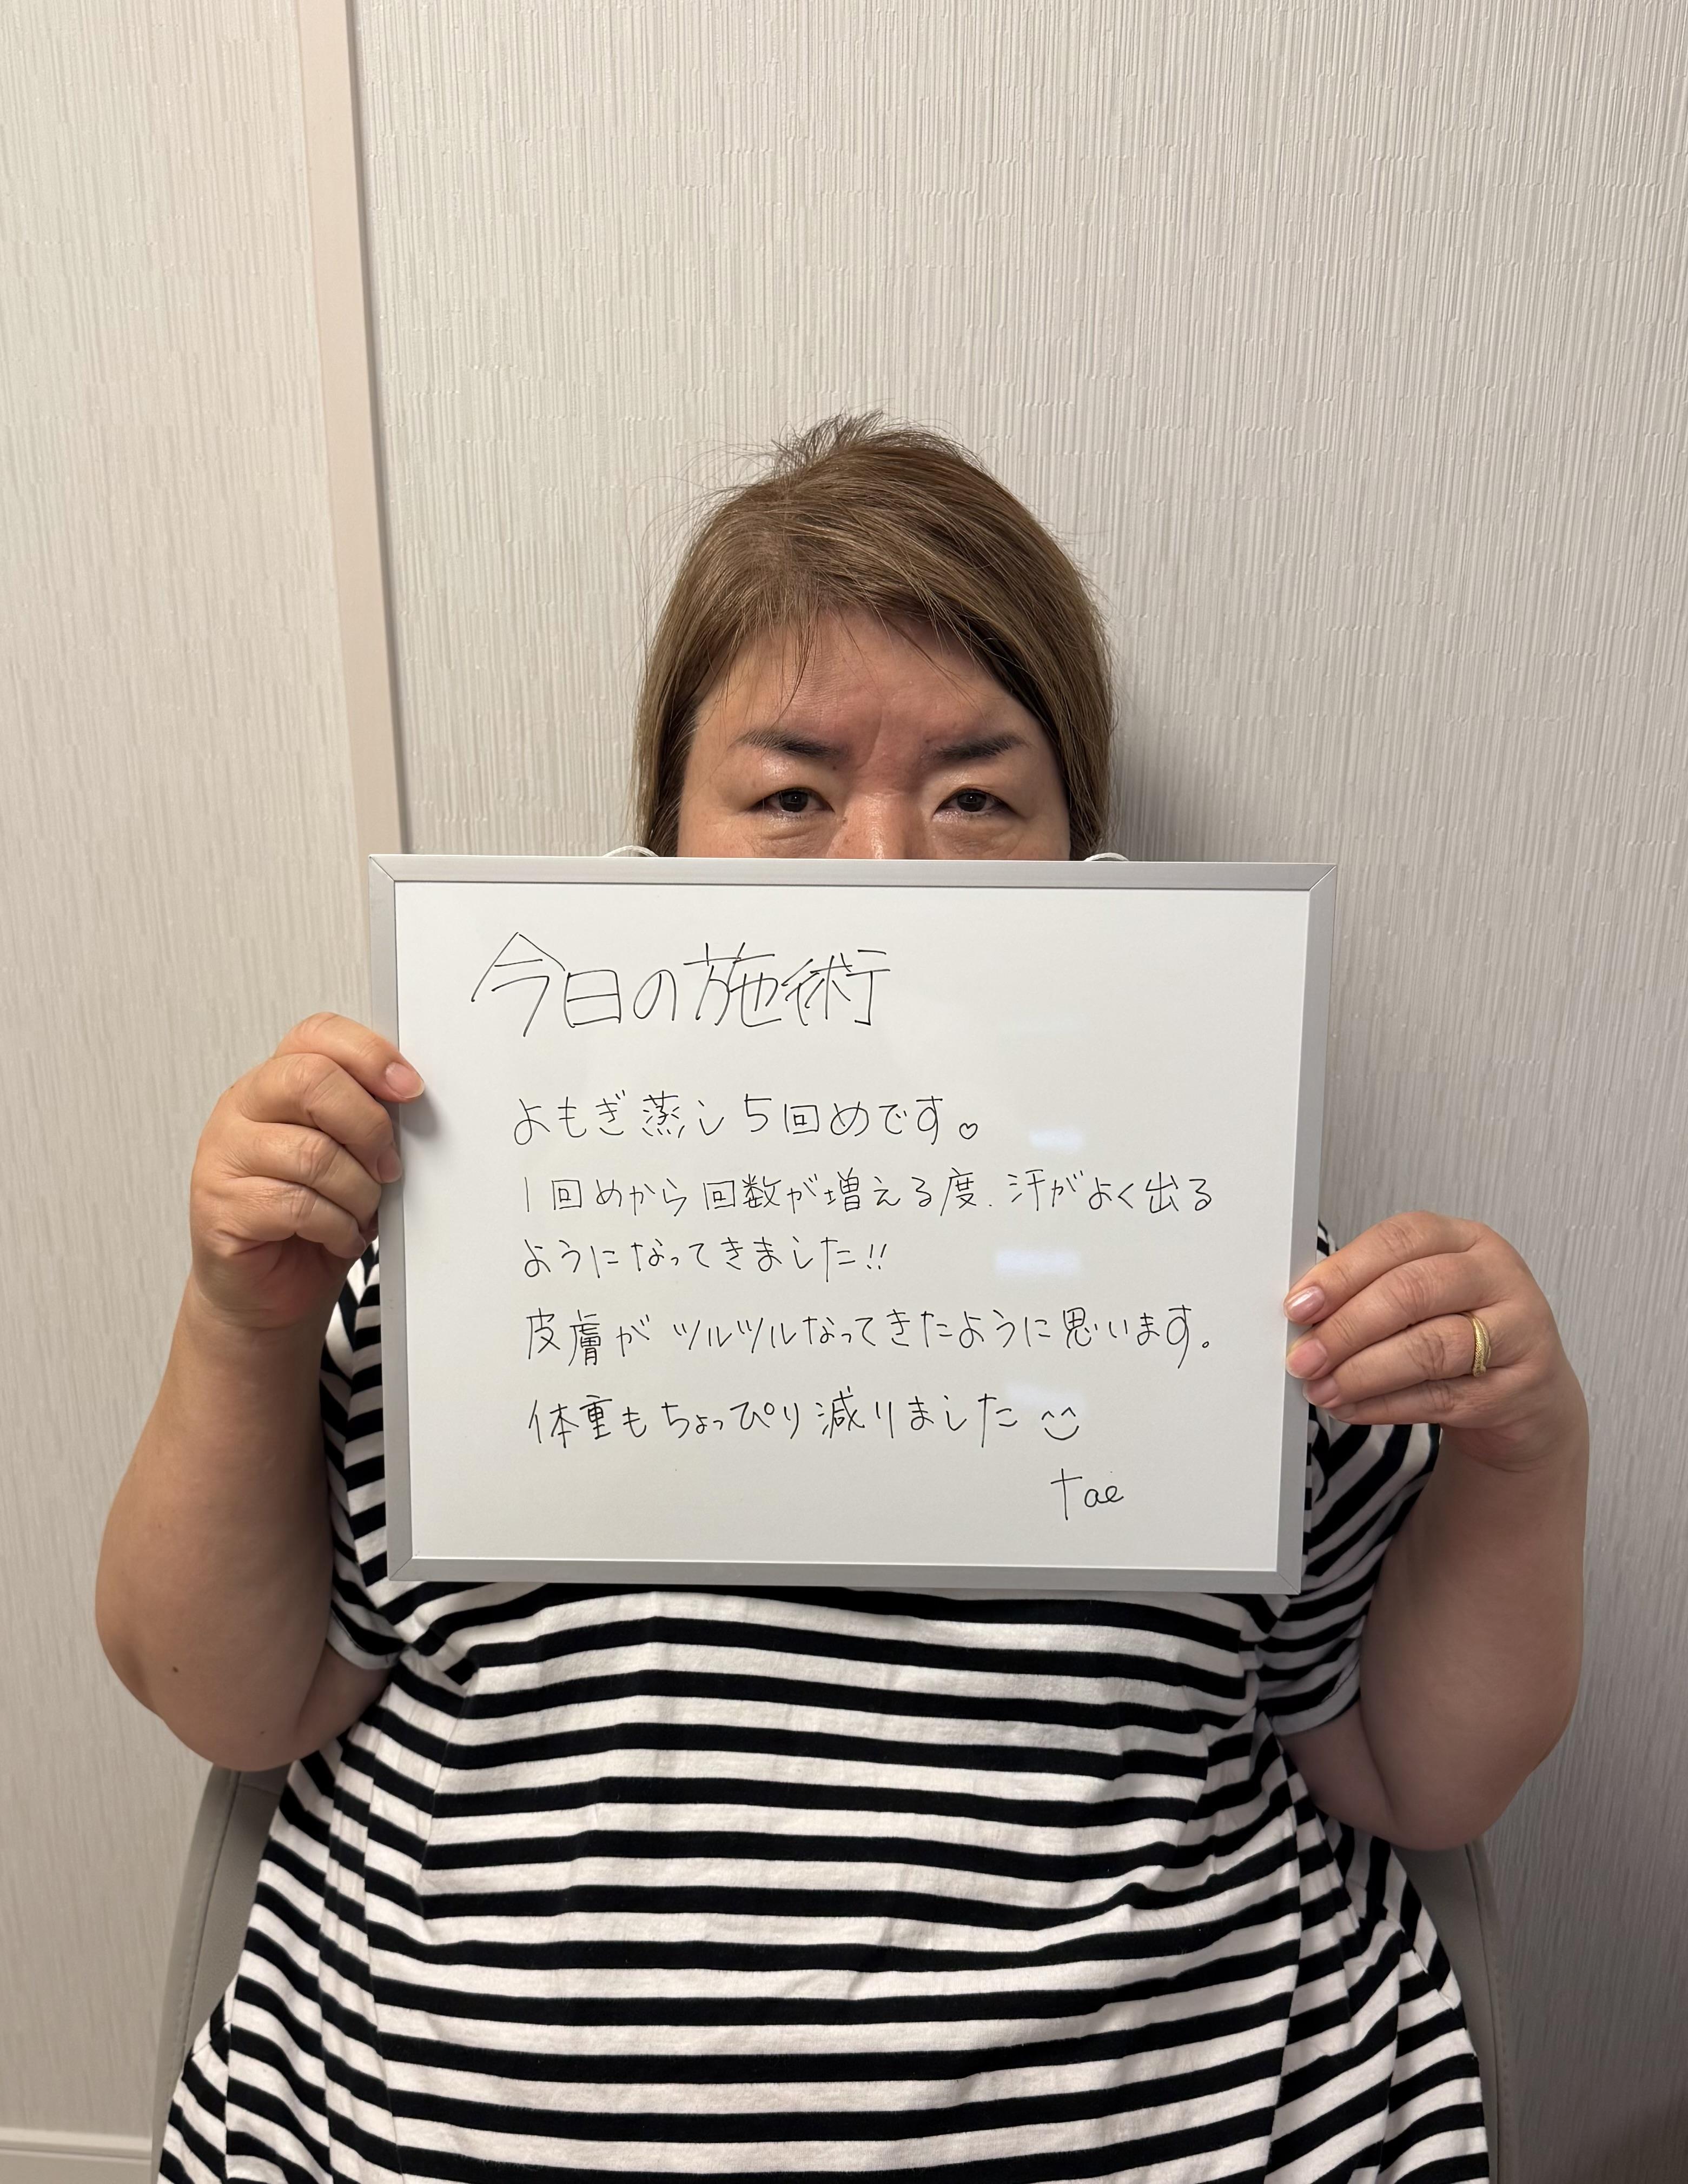 今日の施術
よもぎ蒸し5回めです♡
1回めから回数が増える度、汗がよく出る
ようになってきました!!
皮膚がツルツルなってきたように思います。
体重もちょっぴり減りました^^
tae